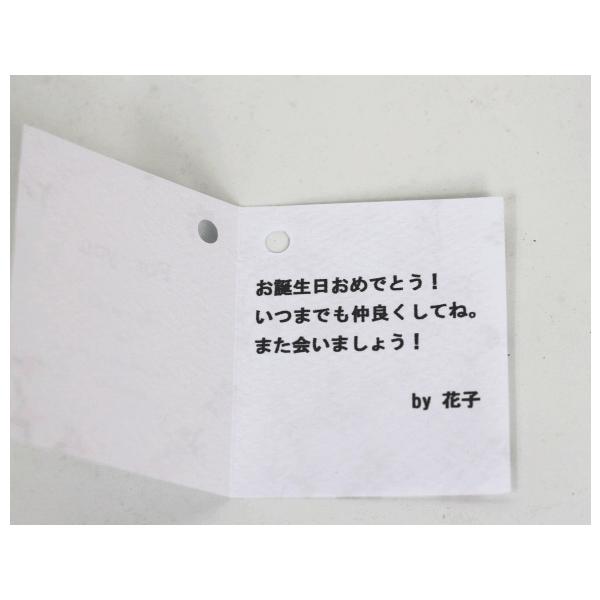 お誕生日おめでとう！
いつまでも仲良くしてね。
また会いましょう！
by 花子